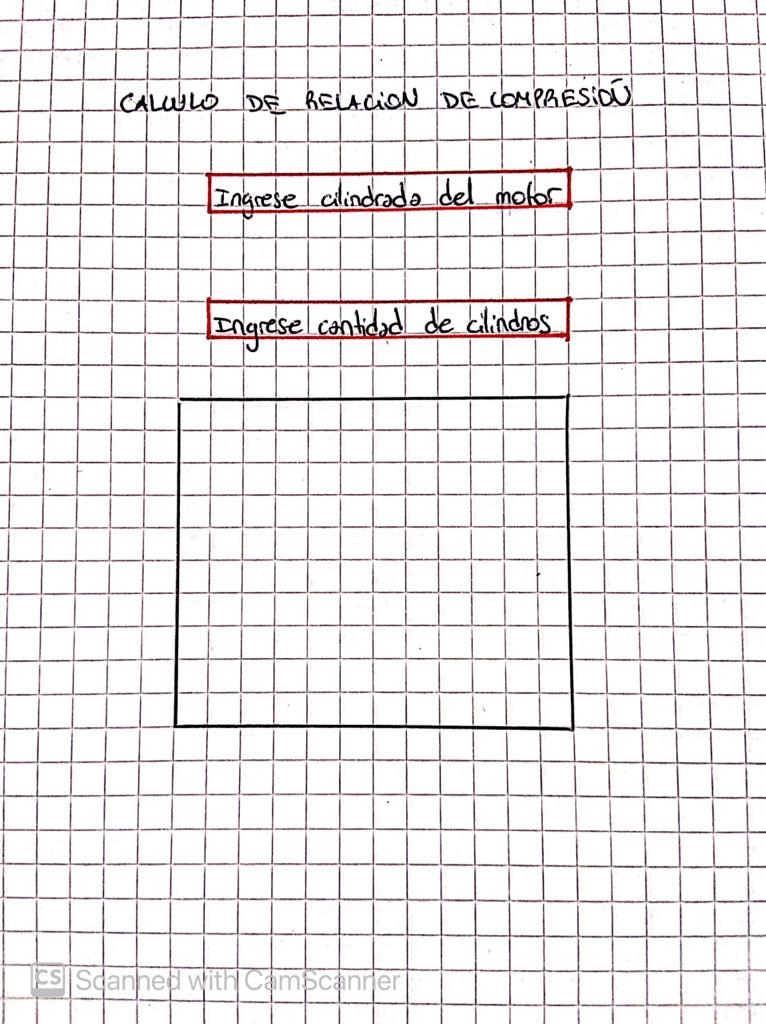 CALCULO DE RELACION DE COMPRESIÓN
Ingrese cilindrada del motor
Ingrese cantidad de cilindros
CS Scanned with CamScanner